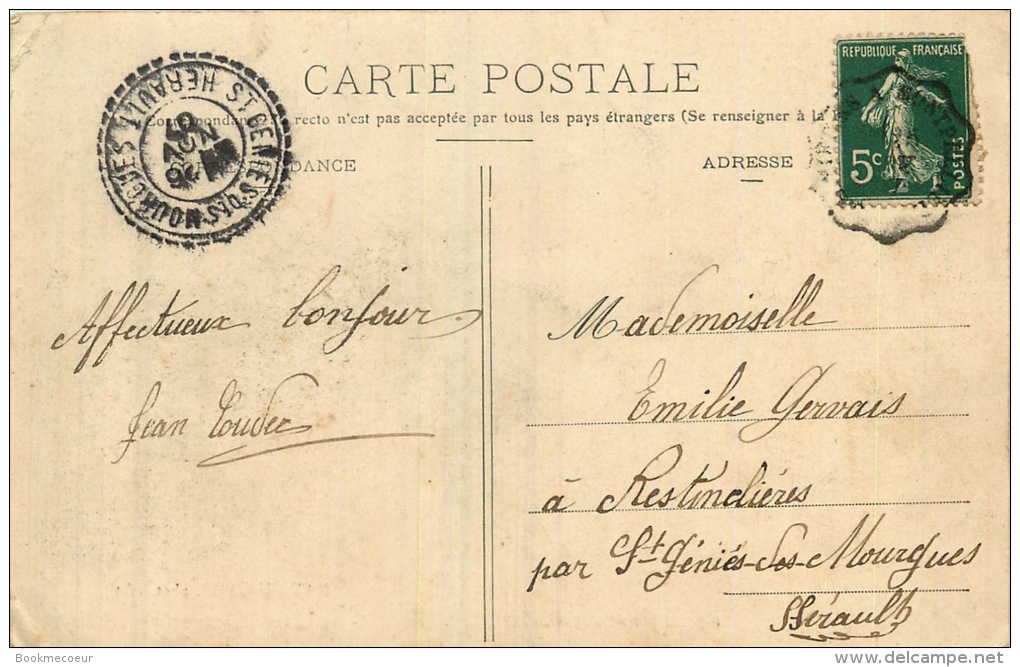 CARTE POSTALE
Correspondance recto n'est pas acceptée par tous les pays étrangers (Se renseigner à la
DANCE
ADRESSE
REPUBLIQUE FRANÇAISE
5c
POSTES
ST GENIES DES MOURGUES HERAULT
NOV
09
Affectueux bonjour
Jean
Mademoiselle
Emilie Gervais
à Restinclières
par St Géniés-des-Mourgues
Hérault
Bookmecoeur